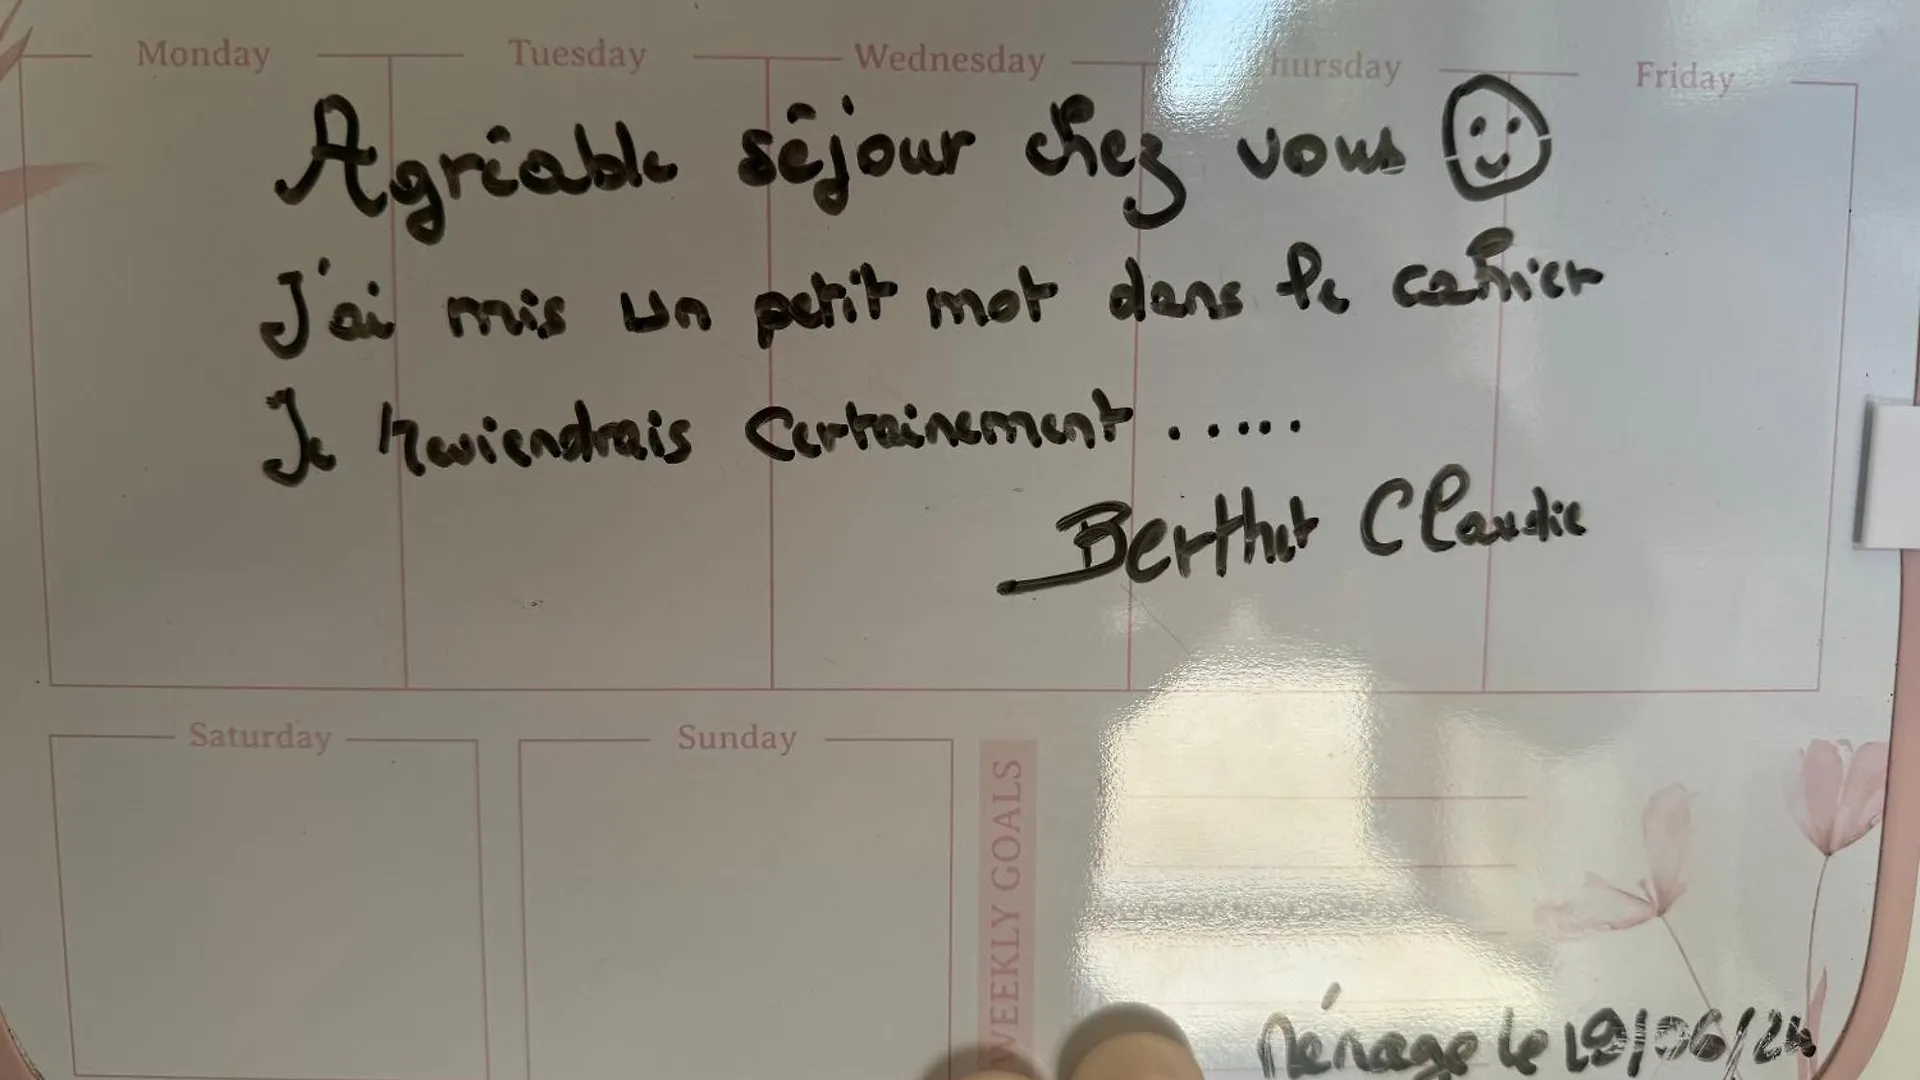 Monday Tuesday Wednesday Thursday Friday
Agréable séjour chez vous
J'ai mis un petit mot dans le cahier
Je reviendrais certainement .....
Berthet Claudie
Saturday Sunday
WEEKLY GOALS
Ménage le 19/06/24